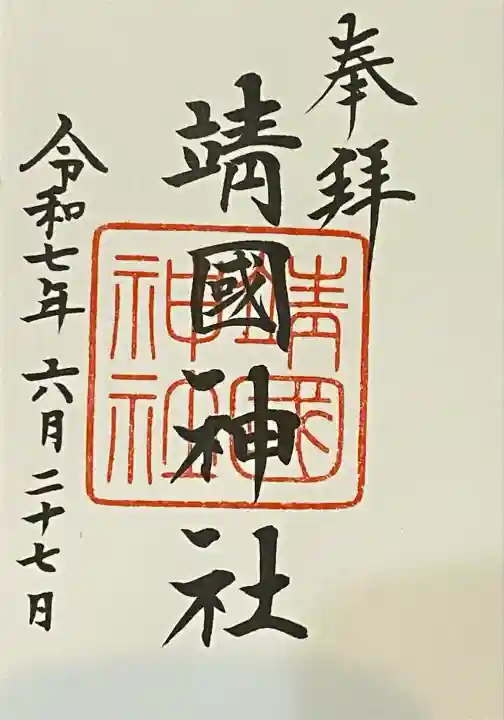 奉拝
靖國神社
靖國神社
令和七年六月二十七日